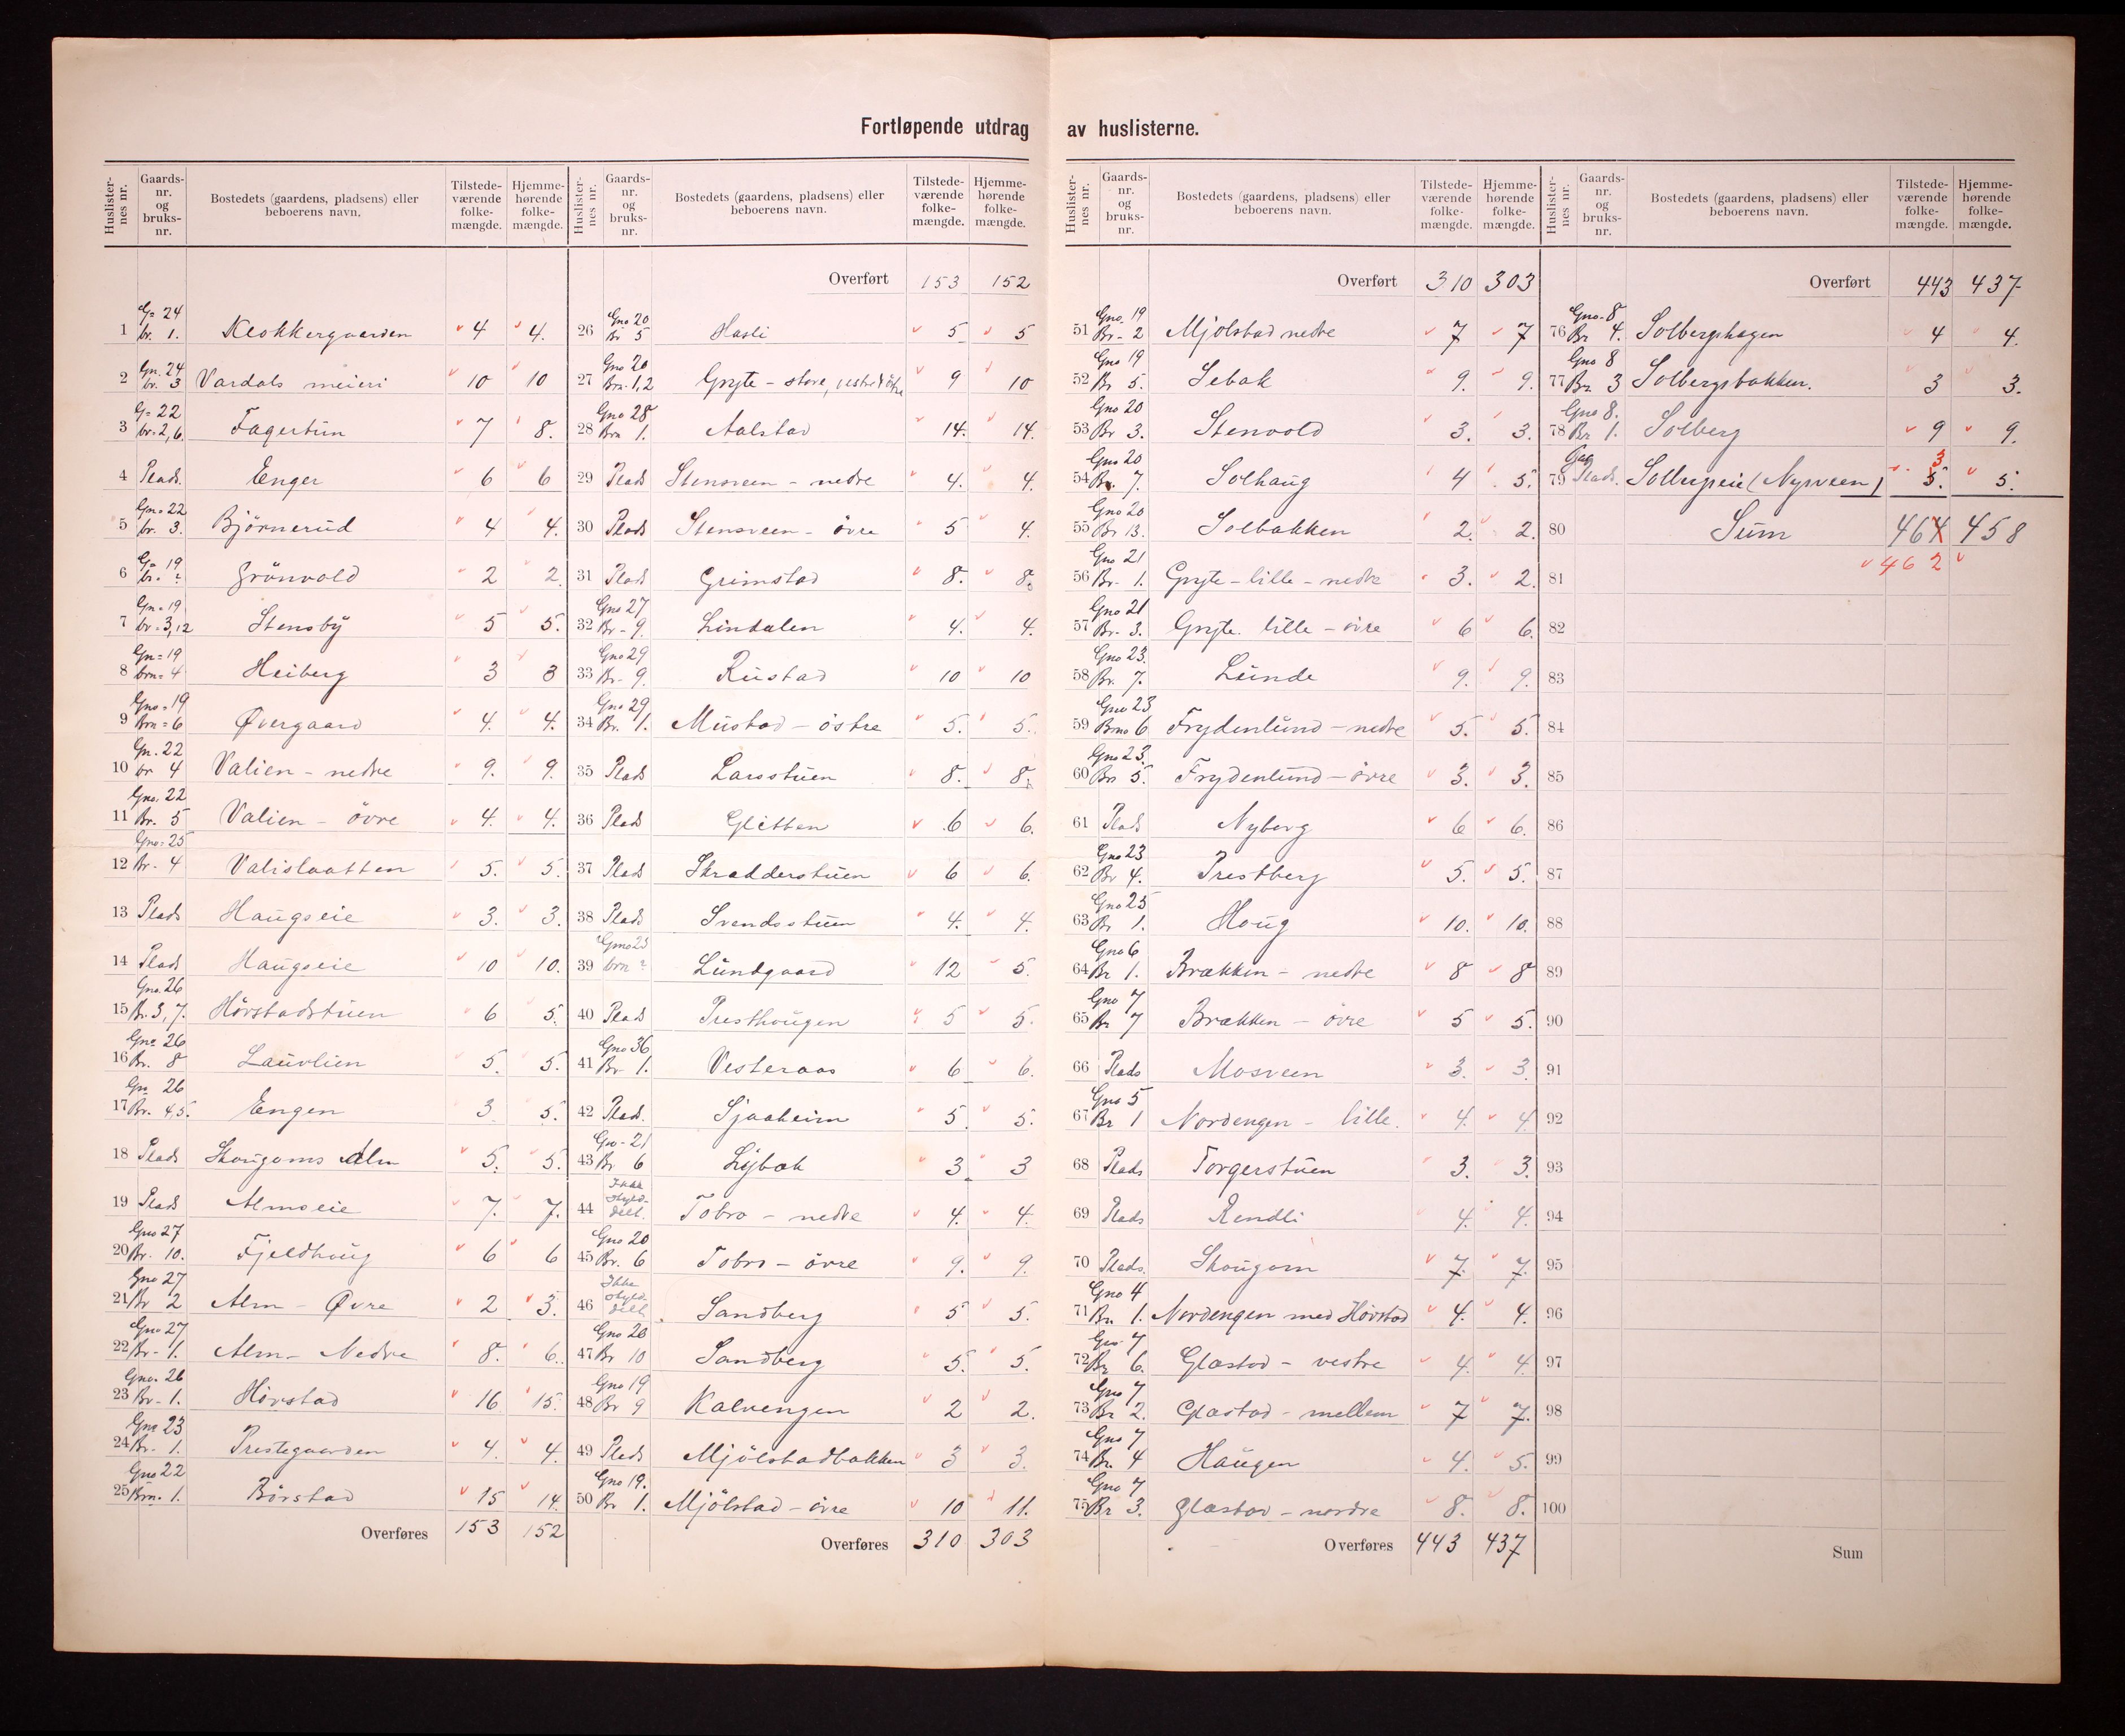 Fortløpende utdrag av huslisterne.
Huslisternes nr. Gaards-nr. og bruks-nr. Bostedets (gaardens, pladsens) eller beboerens navn. Tilstedeværende folkemængde. Hjemmehørende folkemængde.
1 Gn 24 br. 1. Klokkergaarden 4 4.
2 Gn. 24 br. 3 Vardals meieri 10 10
3 G= 22 br= 2, 6. Fagertun 7 8.
4 Plads. Enger 6 6
5 Gno 22 br. 3. Björnerud 4 4.
6 Gn 19 br. ? Grönvold 2 2.
7 Gn= 19 br= 3, 12 Stensby 5 5.
8 Gn= 19 brn= 4 Heiberg 3 3
9 Gno= 19 Brn= 6 Øvergaard 4. 4.
10 Gn. 22 br 4 Valien - nedre 9. 9.
11 Gno. 22 Br. 5 Valien - övre 4. 4.
12 Gno= 25 Br. 4 Valislaatten 5. 5.
13 Plads Haugseie 3. 3.
14 Plads Haugseie 10 10.
15 Gno. 26 Br. 3, 7. Hörstadstuen 6 5.
16 Gno 26 Br. 8 Lauvlien 5. 5.
17 Gn 26 Br. 4,5. Engen 3 5.
18 Plads Skougoms Alm 5. 5.
19 Plads Almseie 7. 7.
20 Gno 27 Br. 10. Fjeldhoug 6 6
21 Gno 27 Br 2 Alm - Øvre 2 3.
22 Gno 27 Br. 1. Alm - Nedre 8. 6.
23 Gno. 26 Br. 1. Hörstad 16 15.
24 Gno 23 Br. 1. Prestegaarden 4. 4.
25 Gno 22 Brn. 1. Börstad 15 14.
Overføres 153 152
Huslisternes nr. Gaards-nr. og bruks-nr. Bostedets (gaardens, pladsens) eller beboerens navn. Tilstedeværende folkemængde. Hjemmehørende folkemængde.
Overført 153 152
26 Gno 20 Br 5 Hasli 5 5
27 Gno 20 Brn. 1,2 Gryte - store, 9 10
28 Gno 28 Brn 1. Aalstad 14. 14.
29 Plads Stensveen - nedre 4. 4.
30 Plads Stensveen - övre 5 4.
31 Plads Grimstad 8. 8.
32 Gno 27 Br - 9. Lindalen 4. 4.
33 Gno 29 Br - 9. Rustad 10 10
34 Gno 29 Br. 1. Mustad - östre 5. 5.
35 Plads Larsstuen 8. 8.
36 Plads Glitten 6 6.
37 Plads Skradderstuen 6 6.
38 Plads Svendsstuen 4. 4.
39 Gno 23 brn ? Lundgaard 12 5.
40 Plads Presthougen 5 5.
41 Gno 36 Br 1. Vesteraas 6 6.
42 Plads. Sjaaheim 5 5.
43 Gno - 21 Br 6 Lybak 3 3
44 Ikke skyld-delt. Tobro - nedre 4. 4.
45 Gno 20 Br. 6 Tobro - övre 9. 9.
46 Ikke skyld-delt Sandberg 5 5.
47 Gno 20 Br 10 Sandberg 5. 5.
48 Gno 19 Br 9 Kalvengen 2 2.
49 Plads Mjölstadbakken 3 3.
50 Gno 19. Br 1. Mjölstad - övre 10 11.
Overføres 310 303
Huslisternes nr. Gaards-nr. og bruks-nr. Bostedets (gaardens, pladsens) eller beboerens navn. Tilstedeværende folkemængde. Hjemmehørende folkemængde.
Overført 310 303
51 Gno. 19 Br - 2 Mjölstad nedre 7 7
52 Gno 19 Br 5. Sebak 9. 9.
53 Gno 20 Br 3. Stenvold 3. 3.
54 Gno 20 Br. 7. Solhaug 4 5.
55 Gno 20 Br 13. Solbakken 2. 2.
56 Gno 21 Br. 1. Gryte - lille - nedre 3. 2.
57 Gno 21 Br. 3. Gryte. lille - övre 6 6.
58 Gno 23. Br. 7. Lunde 9. 9.
59 Gno 23 Brno 6 Frydenlund - nedre 5. 5.
60 Gno 23. Br 5. Frydenlund - övre 3. 3.
61 Plads Nyborg 6 6.
62 Gno 23 Br 4. Prestberg 5. 5.
63 Gno 25 Br 1. Houg 10. 10.
64 Gno 6 Br 1. Brækken - nedre 8 8
65 Gno 7 Br 7 Brækken - övre 5 5.
66 Plads Mosveen 3. 3.
67 Gno 5 Br 1 Nordengen - lille. 4. 4
68 Plads Torgerstuen 3. 3.
69 Plads Rendli 4. 4.
70 Plads. Skougom 7. 7.
71 Gno 4 Br. 1. Nordengen med Hörstad 4. 4.
72 Gno 7 Br. 6. Glæstad - vestre 4. 4.
73 Gno 7 Br 2. Glæstad - mellem 7 7.
74 Gno 7 Br. 4 Haugen 4. 5.
75 Gno 7 Br 3. Glæstad - nordre 8. 8.
Overføres 443 437
Huslisternes nr. Gaards-nr. og bruks-nr. Bostedets (gaardens, pladsens) eller beboerens navn. Tilstedeværende folkemængde. Hjemmehørende folkemængde.
Overført 443 437
76 Gno. 8 Br 4. Solbergshagen 4 4.
77 Gno 8 Br. 3 Solbergsbakken. 3 3.
78 Gno 8. Br 1. Solberg 9 9.
79 Plads. Solbergseie (Nysveen) 5. 3 5.
80 Sum 464 458
81 462
82
83
84
85
86
87
88
89
90
91
92
93
94
95
96
97
98
99
100
Sum